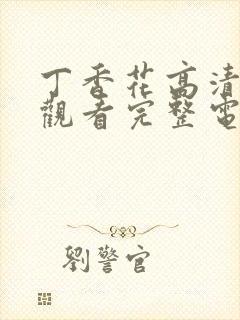 丁香花高清
觀看完整電
劉警官